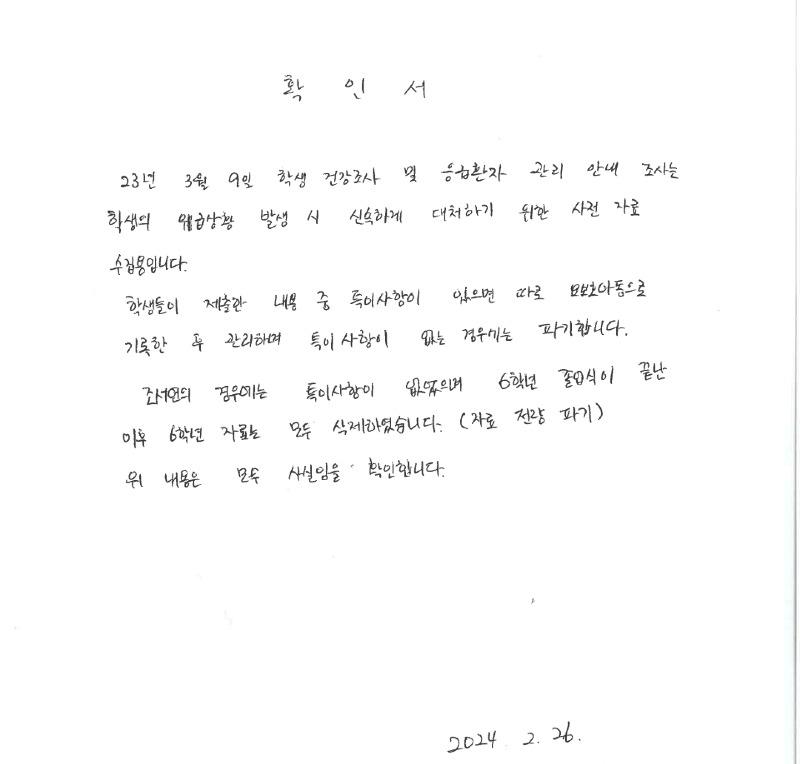 확 인 서
23년 3월 9일 학생 건강조사 및 응급환자 관리 안내 조사는
학생의 위급상황 발생 시 신속하게 대처하기 위한 사전 자료
수집용입니다.
학생들이 제출한 내용 중 특이사항이 있으면 따로 요보호아동으로
기록한 후 관리하며 특이사항이 없는 경우에는 파기합니다.
조서연의 경우에는 특이사항이 없었으며 6학년 졸업식이 끝난
이후 6학년 자료는 모두 삭제하였습니다. (자료 전량 파기)
위 내용은 모두 사실임을 확인합니다.
2024. 2. 26.